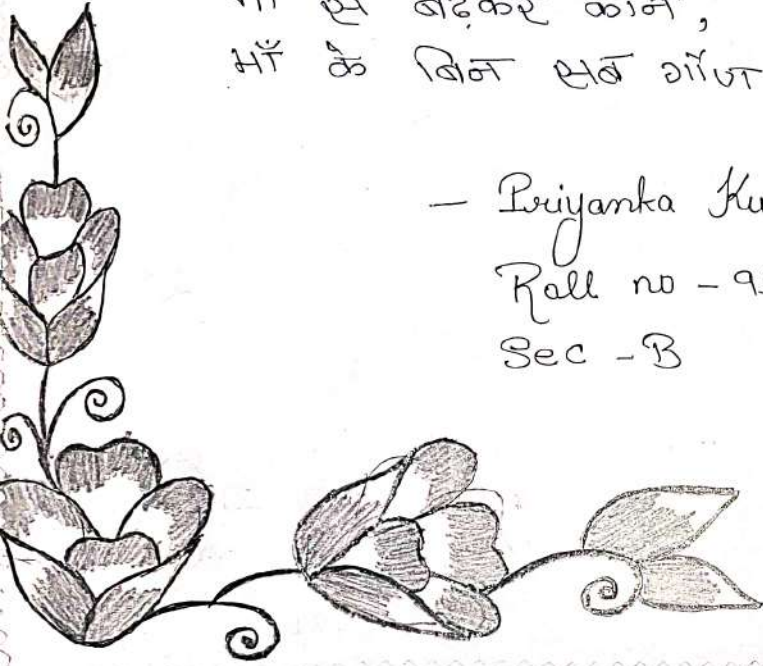 माँ से बढ़कर कौन,
माँ के बिन सब गौण
— Priyanka Ku
Roll no - 9
Sec - B